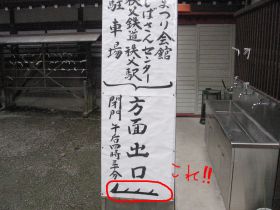 まつり会館
じばさんセンター
秩父鉄道秩父駅
駐車場
方面出口
閉門 午后四時三十分
これ!!